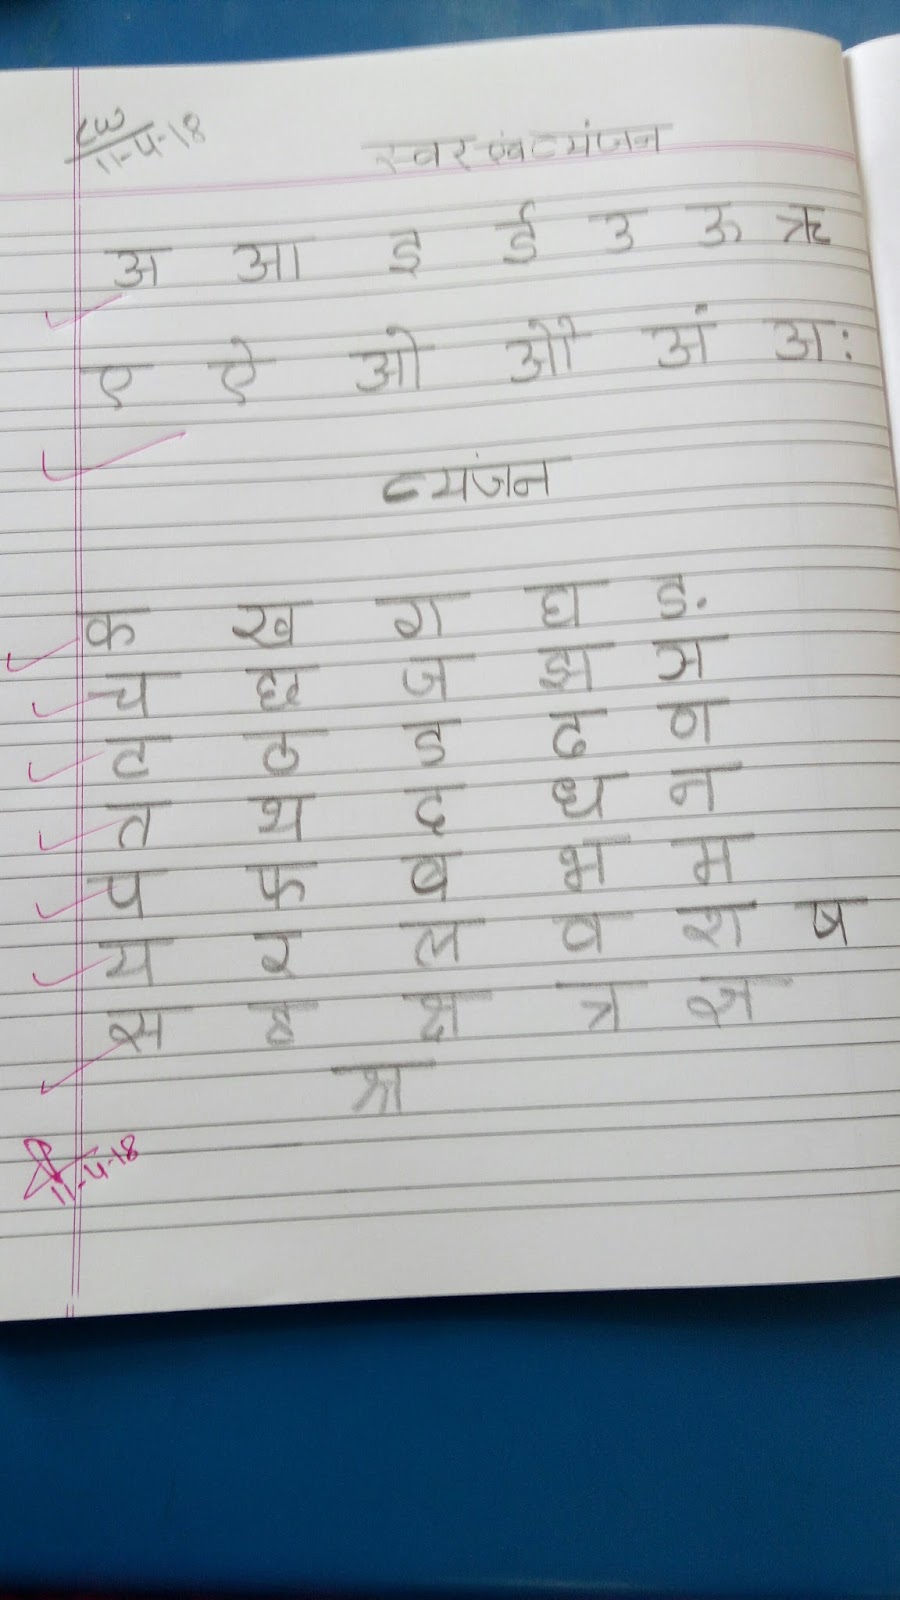 cw
11-4-18
स्वर एवं व्यंजन
अ आ इ ई उ ऊ ऋ
ए ऐ ओ औ अं अः
व्यंजन
क ख ग घ ङ
च छ ज झ ञ
ट ठ ड ढ ण
त थ द ध न
प फ ब भ म
य र ल व श ष
स ह क्ष त्र ज्ञ
श्र
11-4-18